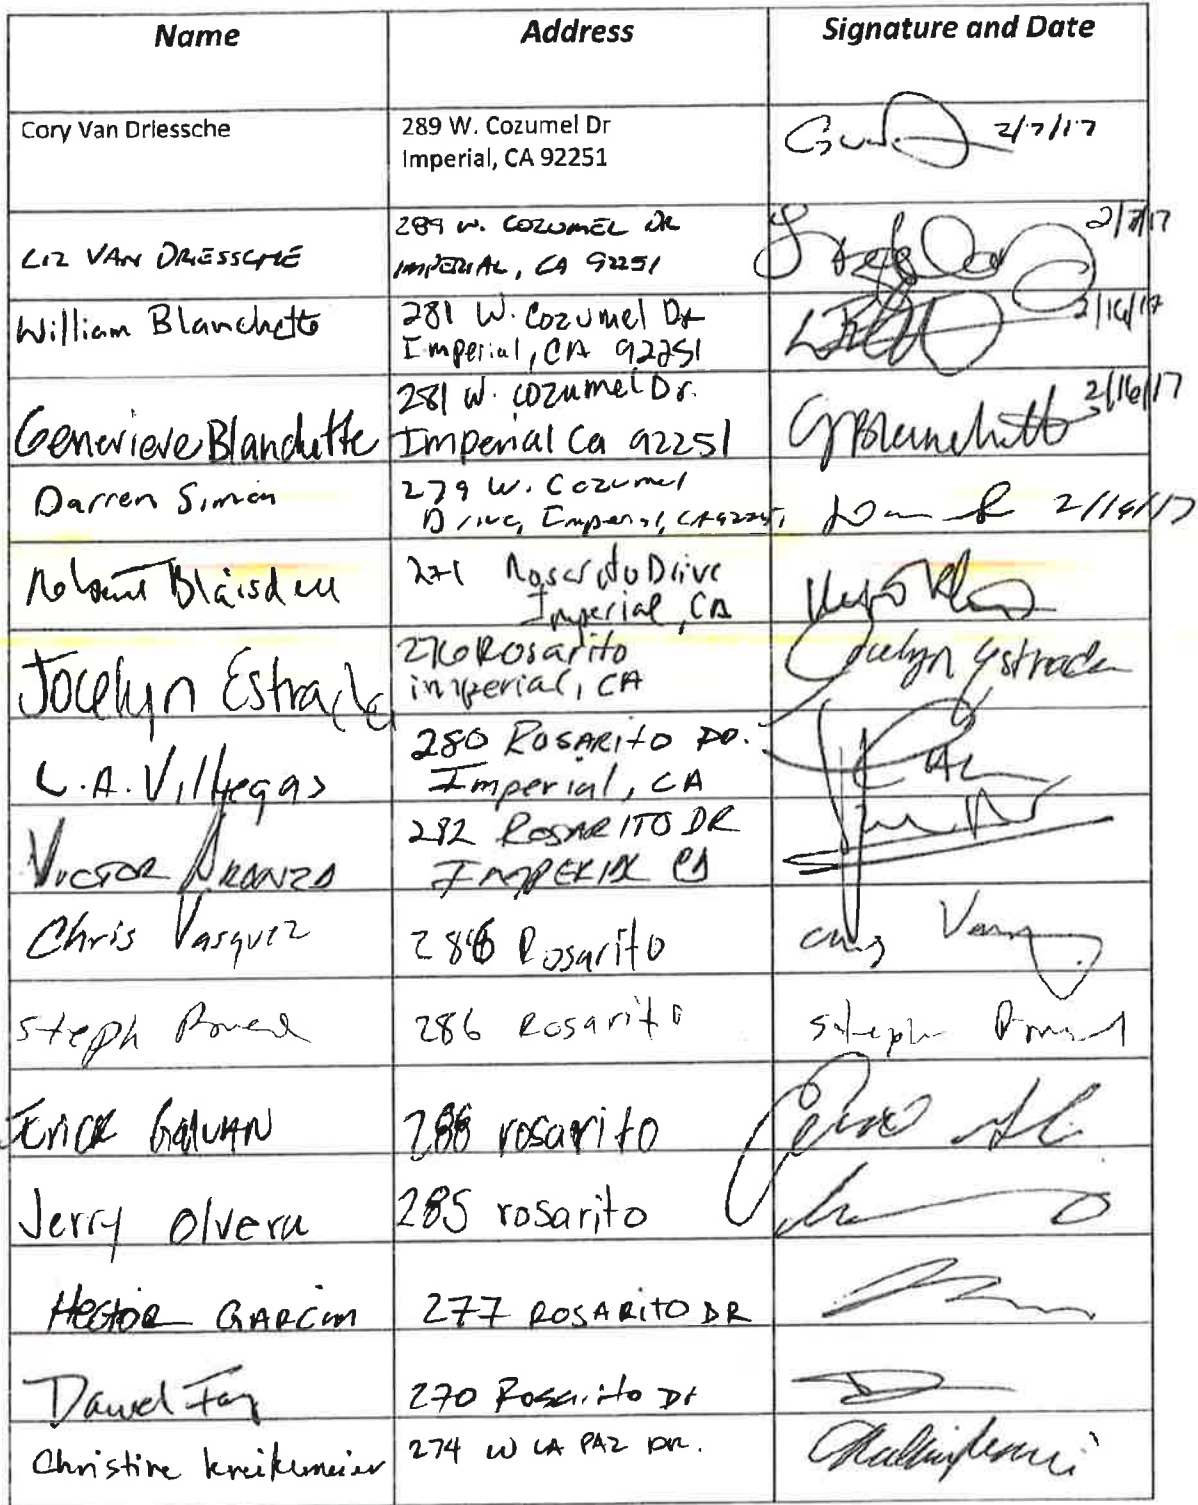 Name Address Signature and Date
Cory Van Driessche 289 W. Cozumel Dr 2/7/17
Imperial, CA 92251
LIZ VAN DRIESSCHE 289 W. COZUMEL DR 2/7/17
IMPERIAL, CA 92251
William Blanchette 281 W. Cozumel Dr 2/16/17
Imperial, CA 92251
Genevieve Blanchette 281 W. Cozumel Dr. GBlanchette 2/16/17
Imperial Ca 92251
Darren Simon 279 W. Cozumel 2/16/17
Drive, Imperial, CA 92251
Blaisdell 271 Rosarito Drive
Imperial, CA
Jocelyn Estrada 276 Rosarito Jocelyn Estrada
imperial, CA
L.A. Villegas 280 ROSARITO DR.
Imperial, CA
VICTOR ARANZA 282 ROSARITO DR
IMPERIAL CA
Chris Vasquez 286 Rosarito Chris
Steph 286 Rosarito Steph
Erick GALVAN 288 rosarito
Jerry Olvera 285 rosarito
HECTOR GARCIA 277 ROSARITO DR
270 Rosarito Dr
Christine Kreikemeier 274 W LA PAZ DR.